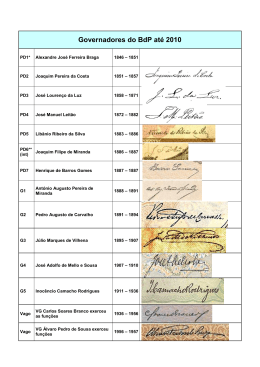 Governadores do BdP até 2010
PD1* Alexandre José Ferreira Braga 1846 – 1851
PD2 Joaquim Pereira da Costa 1851 – 1857
PD3 José Lourenço da Luz 1858 – 1871
PD4 José Manuel Leitão 1872 – 1882
PD5 Libânio Ribeiro da Silva 1883 – 1886
PD6** (int) Joaquim Filipe de Miranda 1886 – 1887
PD7 Henrique de Barros Gomes 1887 – 1887
G1 António Augusto Pereira de Miranda 1888 – 1891
G2 Pedro Augusto de Carvalho 1891 – 1894
G3 Júlio Marques de Vilhena 1895 – 1907
G4 José Adolfo de Mello e Sousa 1907 – 1910
G5 Inocêncio Camacho Rodrigues 1911 – 1936
Vago VG Carlos Soares Branco exerceu as funções 1936 – 1956
Vago VG Álvaro Pedro de Sousa exerceu funções 1956 – 1957